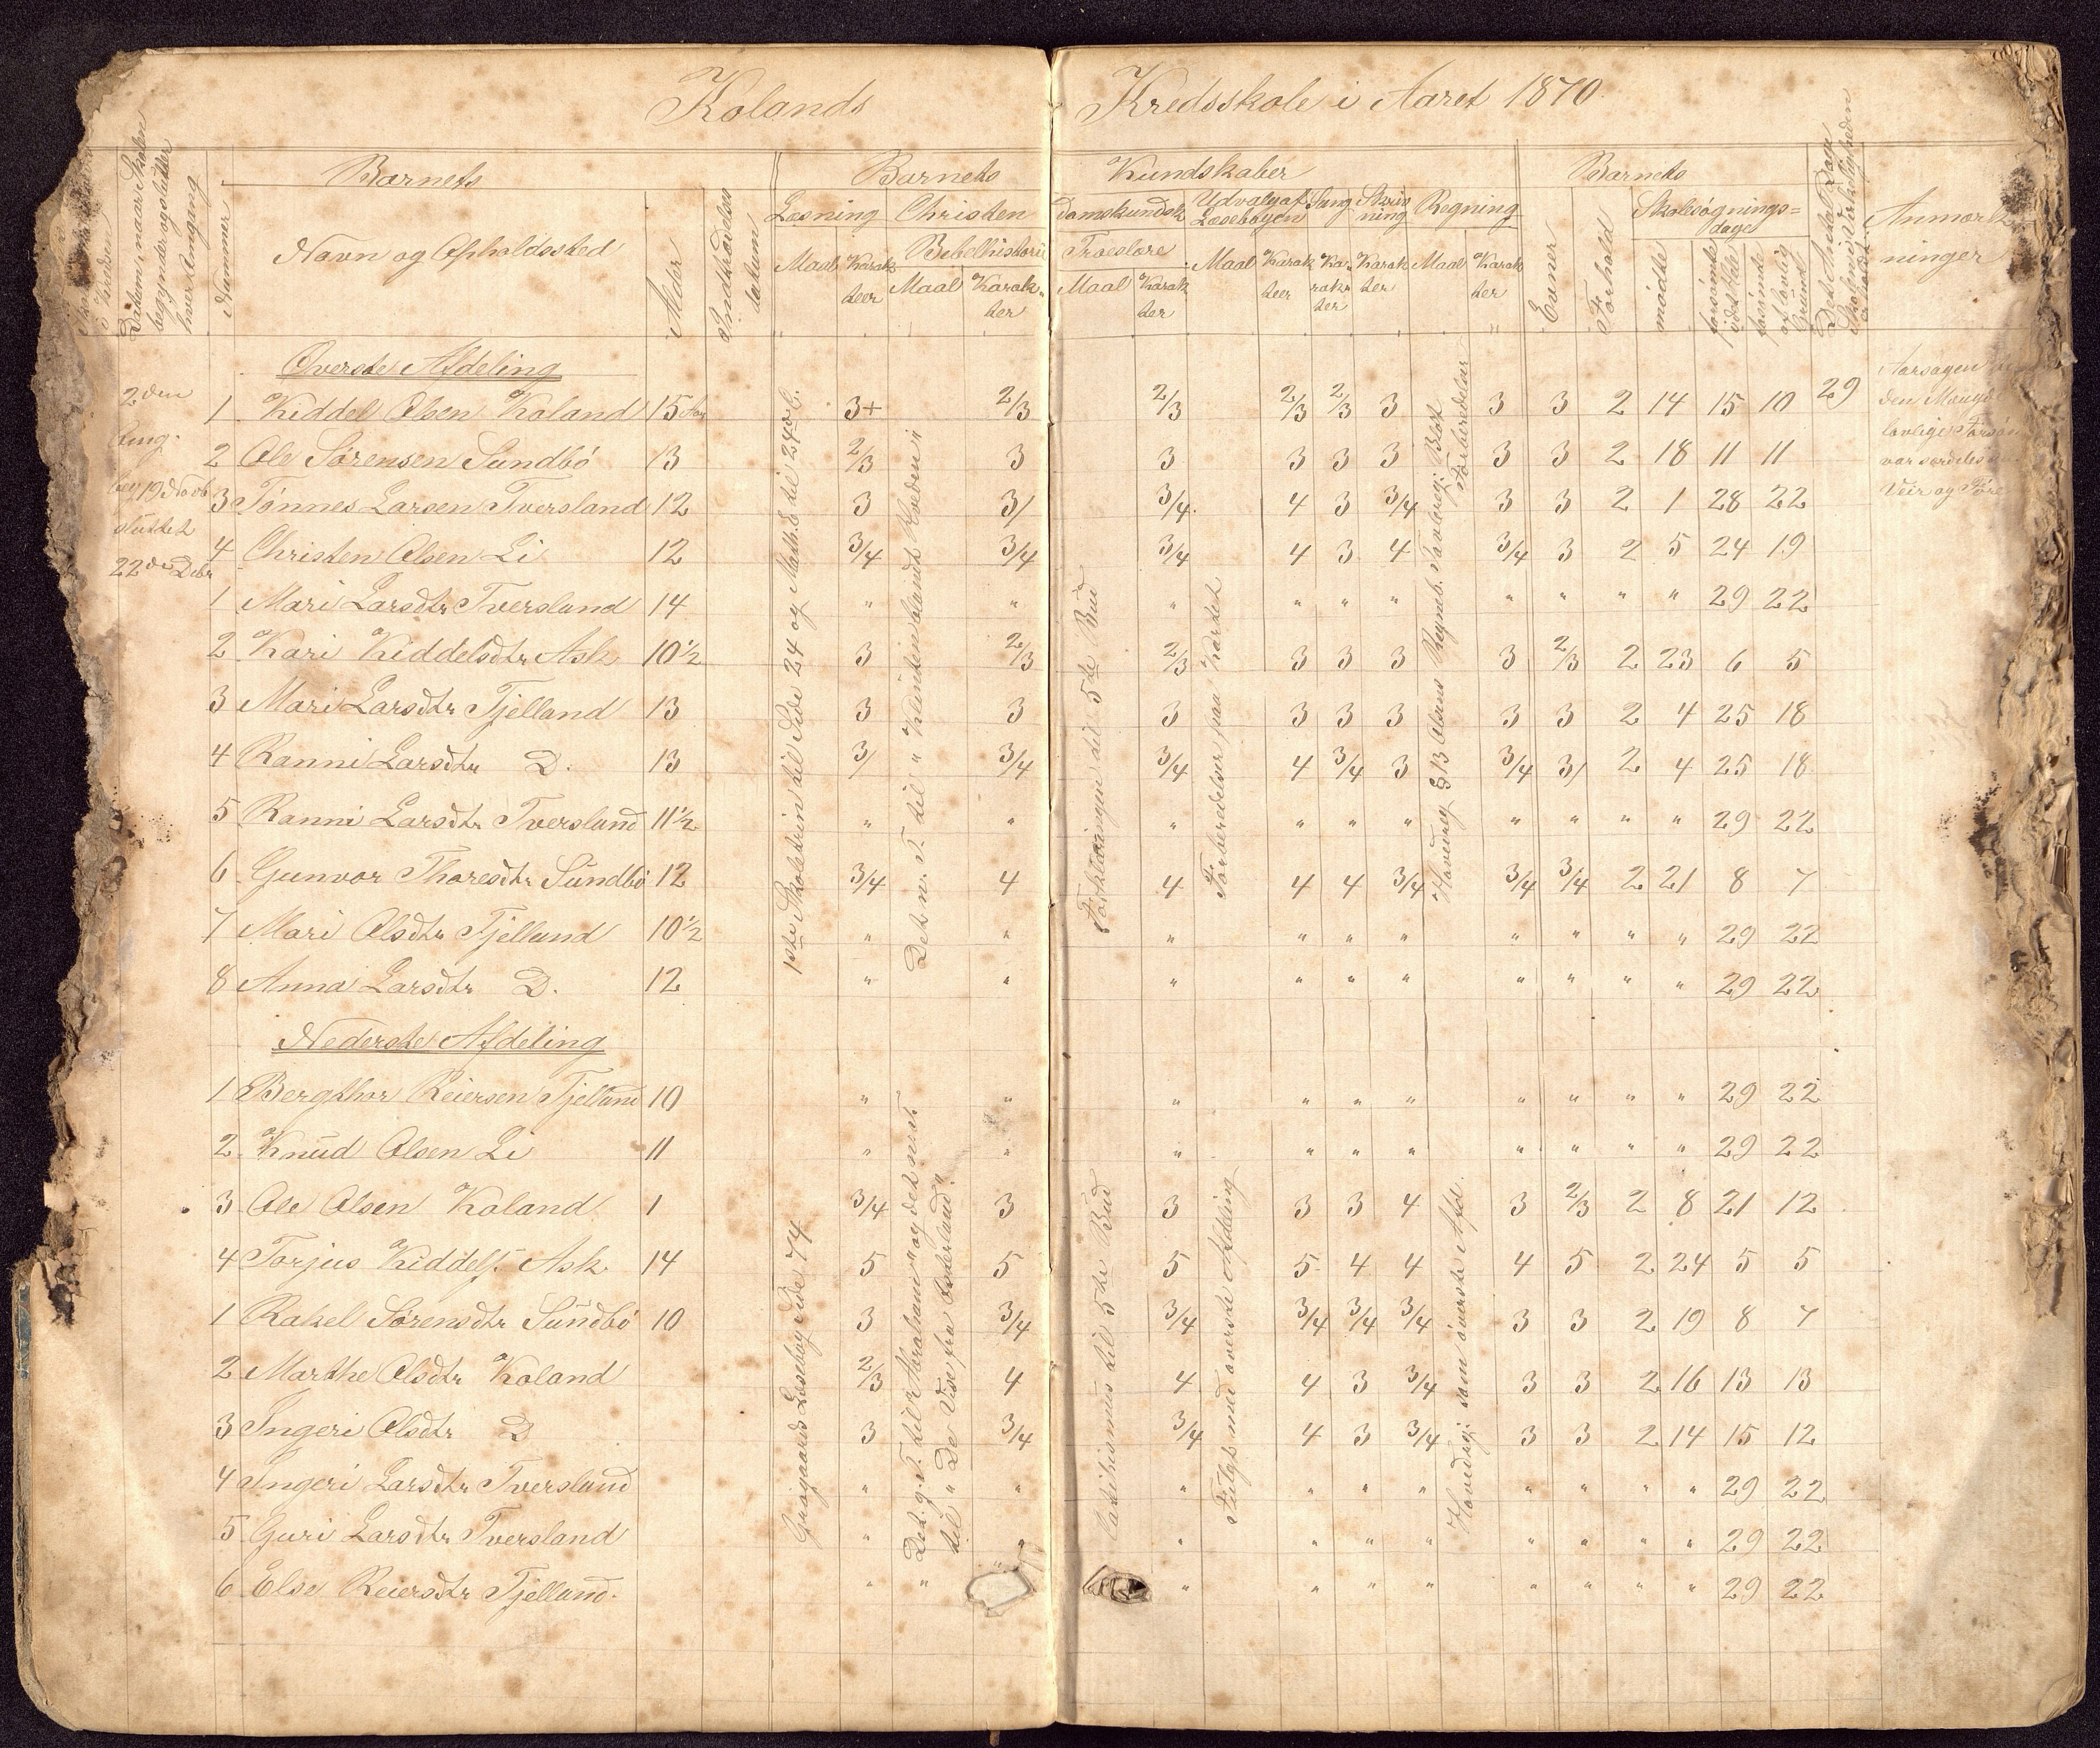 Kolands Kredsskole i Aaret 1870.
Datum, naar Skolen begynder og slutter hver Engang
Nummer
Barnets
Navn og Opholdssted
Alder
Indtrædelses datum
Barnets Kundskaber
Læsning
Maal
Karakteer
Christendomskundsk
Bibelhistorie
Maal
Karakter
Troeslære
Maal
Karakter
Udvalg af Læsebogen
Maal
Karakteer
Sang
Karakter
Skrivning
Karakter
Regning
Maal
Karakter
Barnets
Evner
Forhold
Skolesøgningsdage
mødte
forsømte i det Hele
forsømte af lovlig Grund
Det Antal Dage Skolen i Virkeligheden
Anmærkninger
2den
Aug.
beg 19 Novb
sluttet
22de Debr
Øverste Afdeling
1 Kiddel Olsen Koland 15 Aar 3+ 2/3 2/3 2/3 2/3 3 3 3 2 14 15 10 29
2 Ole Sørensen Sundbö 13 2/3 3 3 3 3 3 3 3 2 18 11 11
3 Tønnes Larsen Tversland 12 3 3/ 3/4 4 3 3/4 3 3 2 1 28 22
4 Christen Olsen Li 12 3/4 3/4 3/4 4 3 4 3/4 3 2 5 24 19
1 Mari Larsdtr Tversland 14 " " " " " " " " " " 29 22
2 Kari Kiddelsdtr Ask 10½ 3 2/3 2/3 3 3 3 3 2/3 2 23 6 5
3 Mari Larsdtr Tjelland 13 3 3 3 3 3 3 3 3 2 4 25 18
4 Ranni Larsdtr D. 13 3/ 3/4 3/4 4 3/4 3 3/4 3/ 2 4 25 18
5 Ranni Larsdtr Tversland 11½ " " " " " " " " " " 29 22
6 Gunvor Thoresdtr Sundbö 12 3/4 4 4 4 4 3/4 3/4 3/4 2 21 8 7
7 Mari Olsdtr Tjelland 10½ " " " " " " " " " " 29 22
8 Anna Larsdtr D. 12 " " " " " " " " " " 29 22
1ste Skoletrin til Side 24 og Matth. E. til 24de C.
Det ny T. til " Kvinden
Forklaringen til 5te Bud
Forberedelser paa Kartet
Hovedreg § 13 Olsens Regneb. Tavlereg: Blot Forberedelser
Aarsagen
den Mang
lovlige Forsøm
var særdeles
Veir og Føre
Nederste Afdeling
1 Bergthor Reiersen Tjelland 10 " " " " " " " " " " 29 22
2 Knud Olsen Li 11 " " " " " " " " " " 29 22
3 Ole Olsen Koland 1 3/4 3 3 3 3 4 3 2/3 2 8 21 12
4 Torjus Kiddels. Ask 14 5 5 5 5 4 4 4 5 2 24 5 5
1 Rakel Sørensdtr Sundbö 10 3 3/4 3/4 3/4 3/4 3/4 3 3 2 19 8 7
2 Marthe Olsdtr Koland 2/3 4 4 4 3 3/4 3 3 2 16 13 13
3 Ingeri Olsdtr D 3 3/4 3/4 4 3 3/4 3 3 2 14 15 12
4 Ingeri Larsdtr Tversland " " " " " " " " " " 29 22
5 Guri Larsdtr Tversland " " " " " " " " " " 29 22
6 Else Reiersdtr Tjelland. " " " " " " " " " " 29 22
Læsebog Side 74
Det g. T. til " Abraham " og det nye T.
til " De Vise fra Østerland "
Catekismus til 5te Bud
Fulgt med øverste Afdeling
Hovedreg: som øverste Afd.